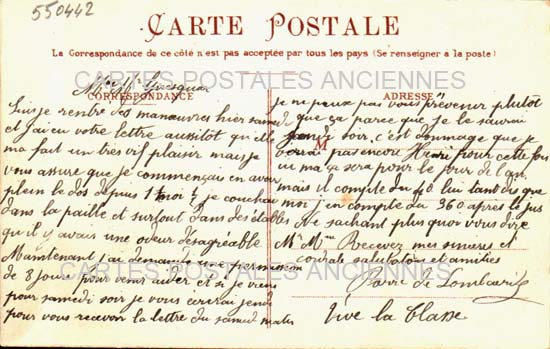 550442
CARTE POSTALE
La Correspondance de ce côté n'est pas acceptée par tous les pays (Se renseigner à la poste)
CARTES POSTALES ANCIENNES
CORRESPONDANCE
ADRESSE
Mr Mme
Suis je rentré des manœuvres hier samedi
et j'ai eu votre lettre aussitot qu'elle
ma fait un tres vif plaisir mais je
vous assure que je commençais en avoir
plein le dos depuis 1 moi ½ je couchai
dans la paille et surtout dans des étables
qu'il y avais une odeur désagréable
Maintenant j'ai demandé une permission
de 8 jours pour venir and et si je viens
pour samedi soir je vous ecrirai jeudi
pour vous recevoir la lettre du samedi matin
je ne peux pas vous prévenir plutôt
que ça parce que je le saurai
jeudi soir, c'est dommage que je
verrai pas encore Henri pour cette fois
ci ma ce sera pour le jour de l'an.
mais il compte du 40 lui tandis que
moi j'en compte du 360 apres le jus
Ne sachant plus quoi vous dire
Mr Mme Recevez mes sinceres et
cordiale salutations et amitiés
CARTES POSTALES ANCIENNES
Vive la Classe